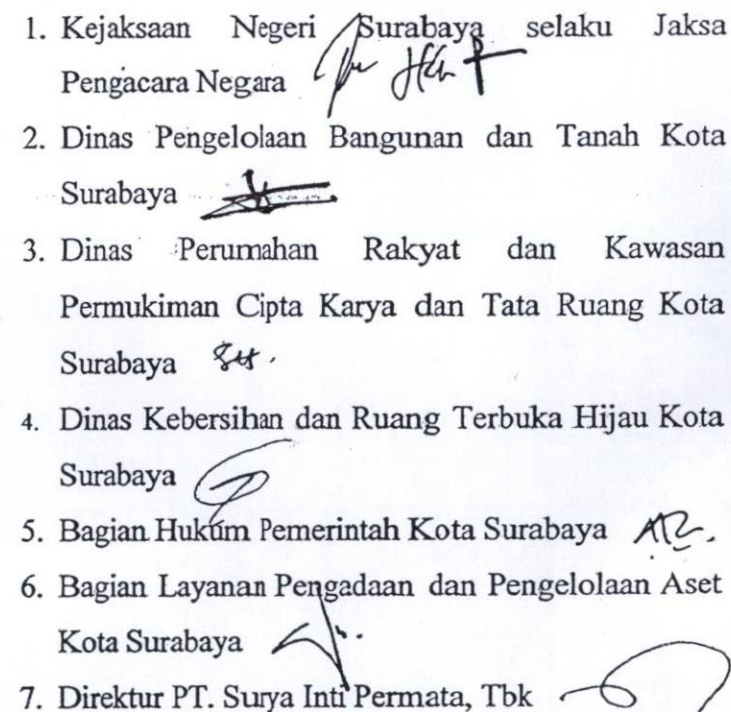 1. Kejaksaan Negeri Surabaya selaku Jaksa
Pengacara Negara
2. Dinas Pengelolaan Bangunan dan Tanah Kota
Surabaya
3. Dinas Perumahan Rakyat dan Kawasan
Permukiman Cipta Karya dan Tata Ruang Kota
Surabaya
4. Dinas Kebersihan dan Ruang Terbuka Hijau Kota
Surabaya
5. Bagian Hukum Pemerintah Kota Surabaya
6. Bagian Layanan Pengadaan dan Pengelolaan Aset
Kota Surabaya
7. Direktur PT. Surya Inti Permata, Tbk